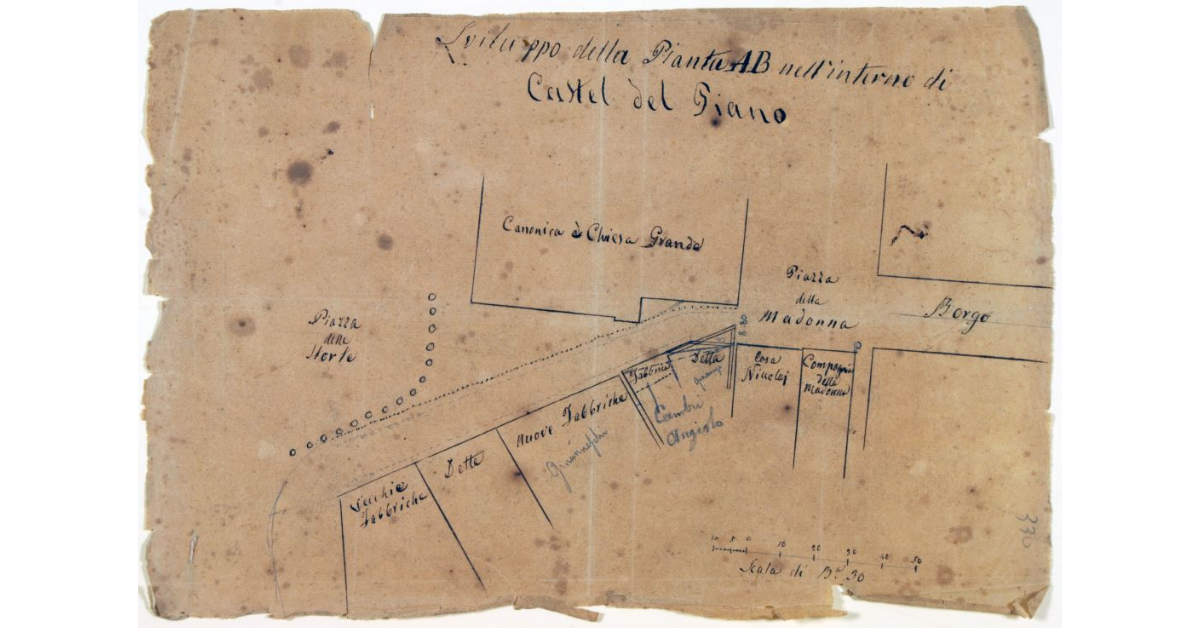 Sviluppo della Pianta AB nell'interno di
Castel del Piano
Canonica è Chiesa Grande
Piazza
della
Madonna
Borgo
Piazza
delle
Storte
8.20
Fabbrica
Detta
Casa
Nicolaj
Compagnia
della
Madonna
Nuove Fabbriche
Cambi
Angiolo
Dette
Vecchie
Fabbriche
10 5 0 10 20 30 40 50
Scala di Bª 30
330